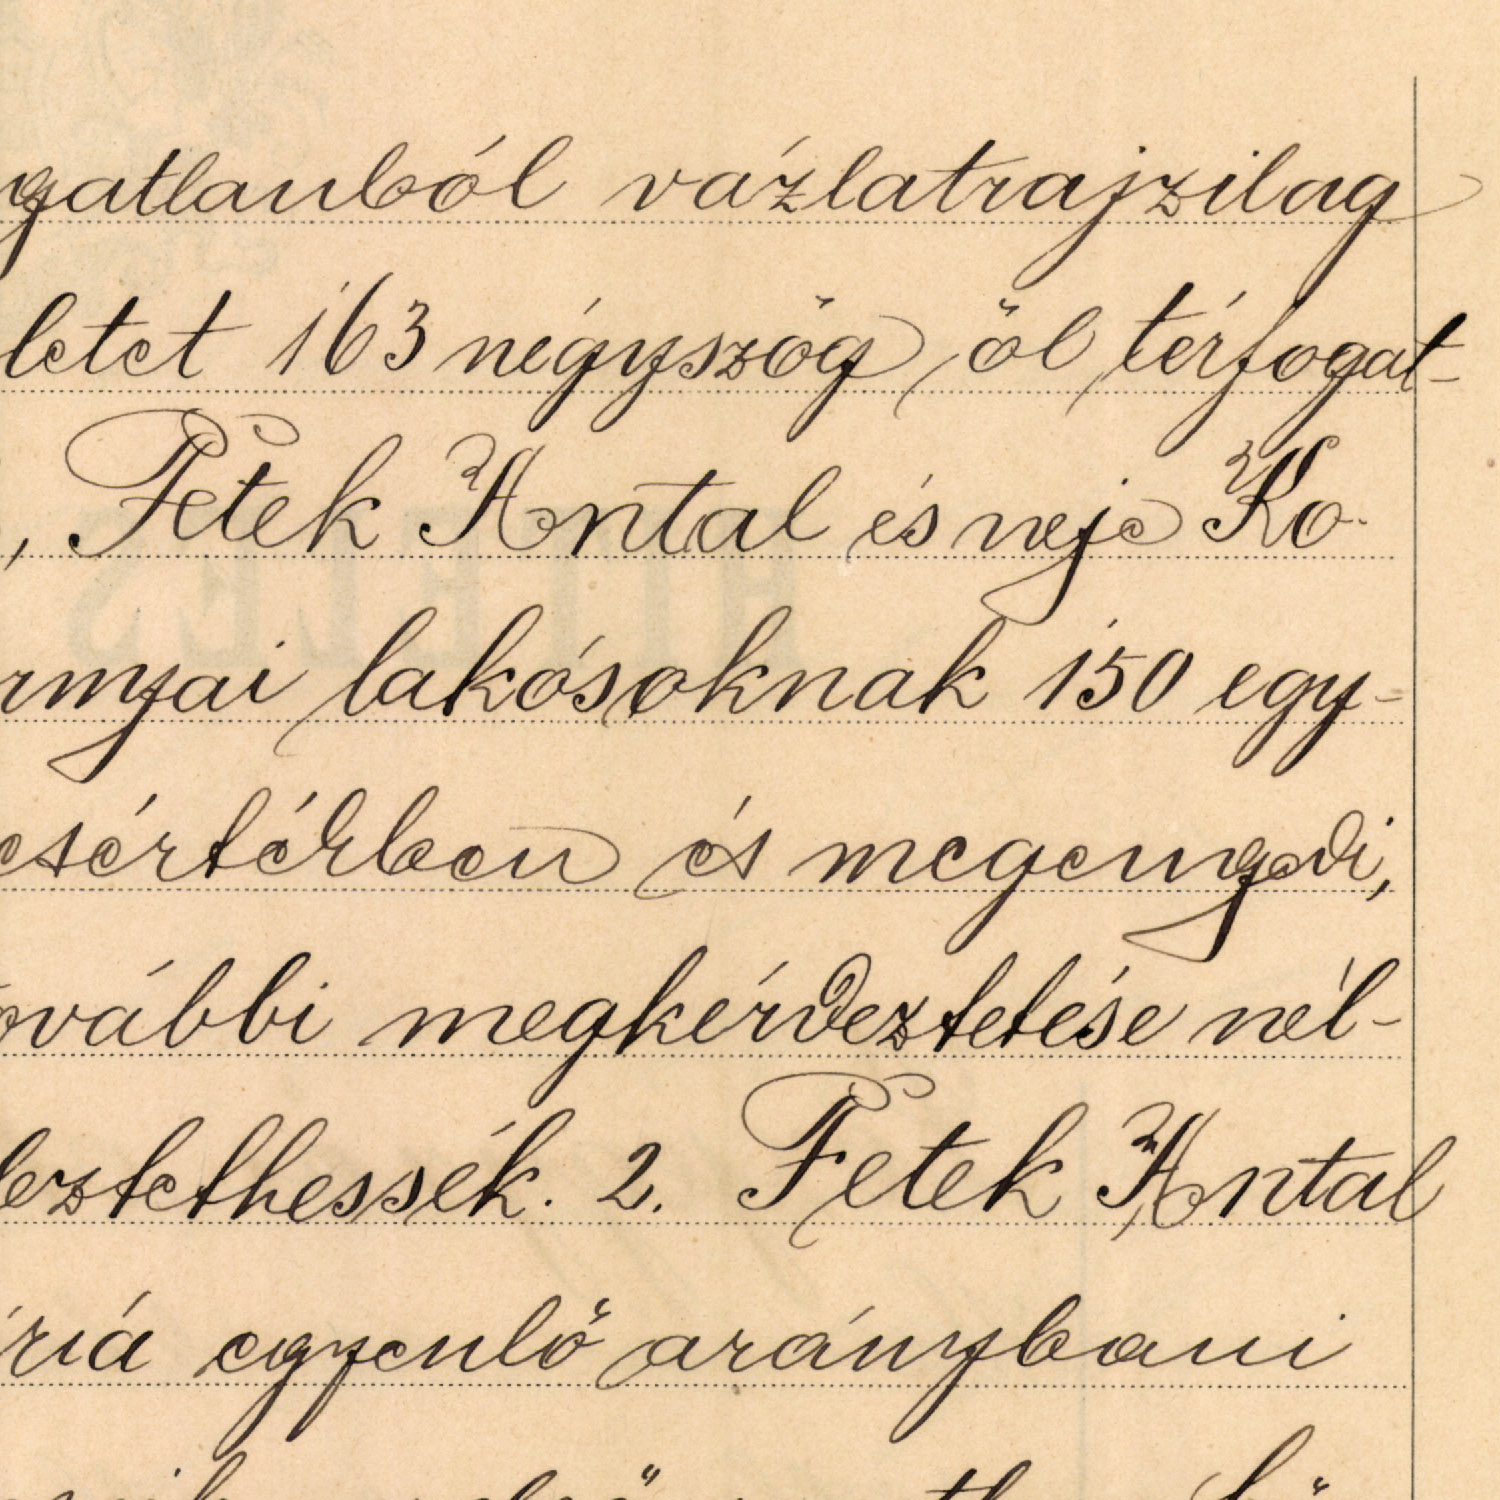 gatlanból vázlatrajzilag
letet 163 négyszög öl térfogat-
, Fetek Antal és neje Ko-
rmyai lakósoknak 150 egy-
csértékben és megengedi,
ovábbi megkérdeztetése nél-
leztethessék. 2. Fetek Antal
ria egyenlő aránybani